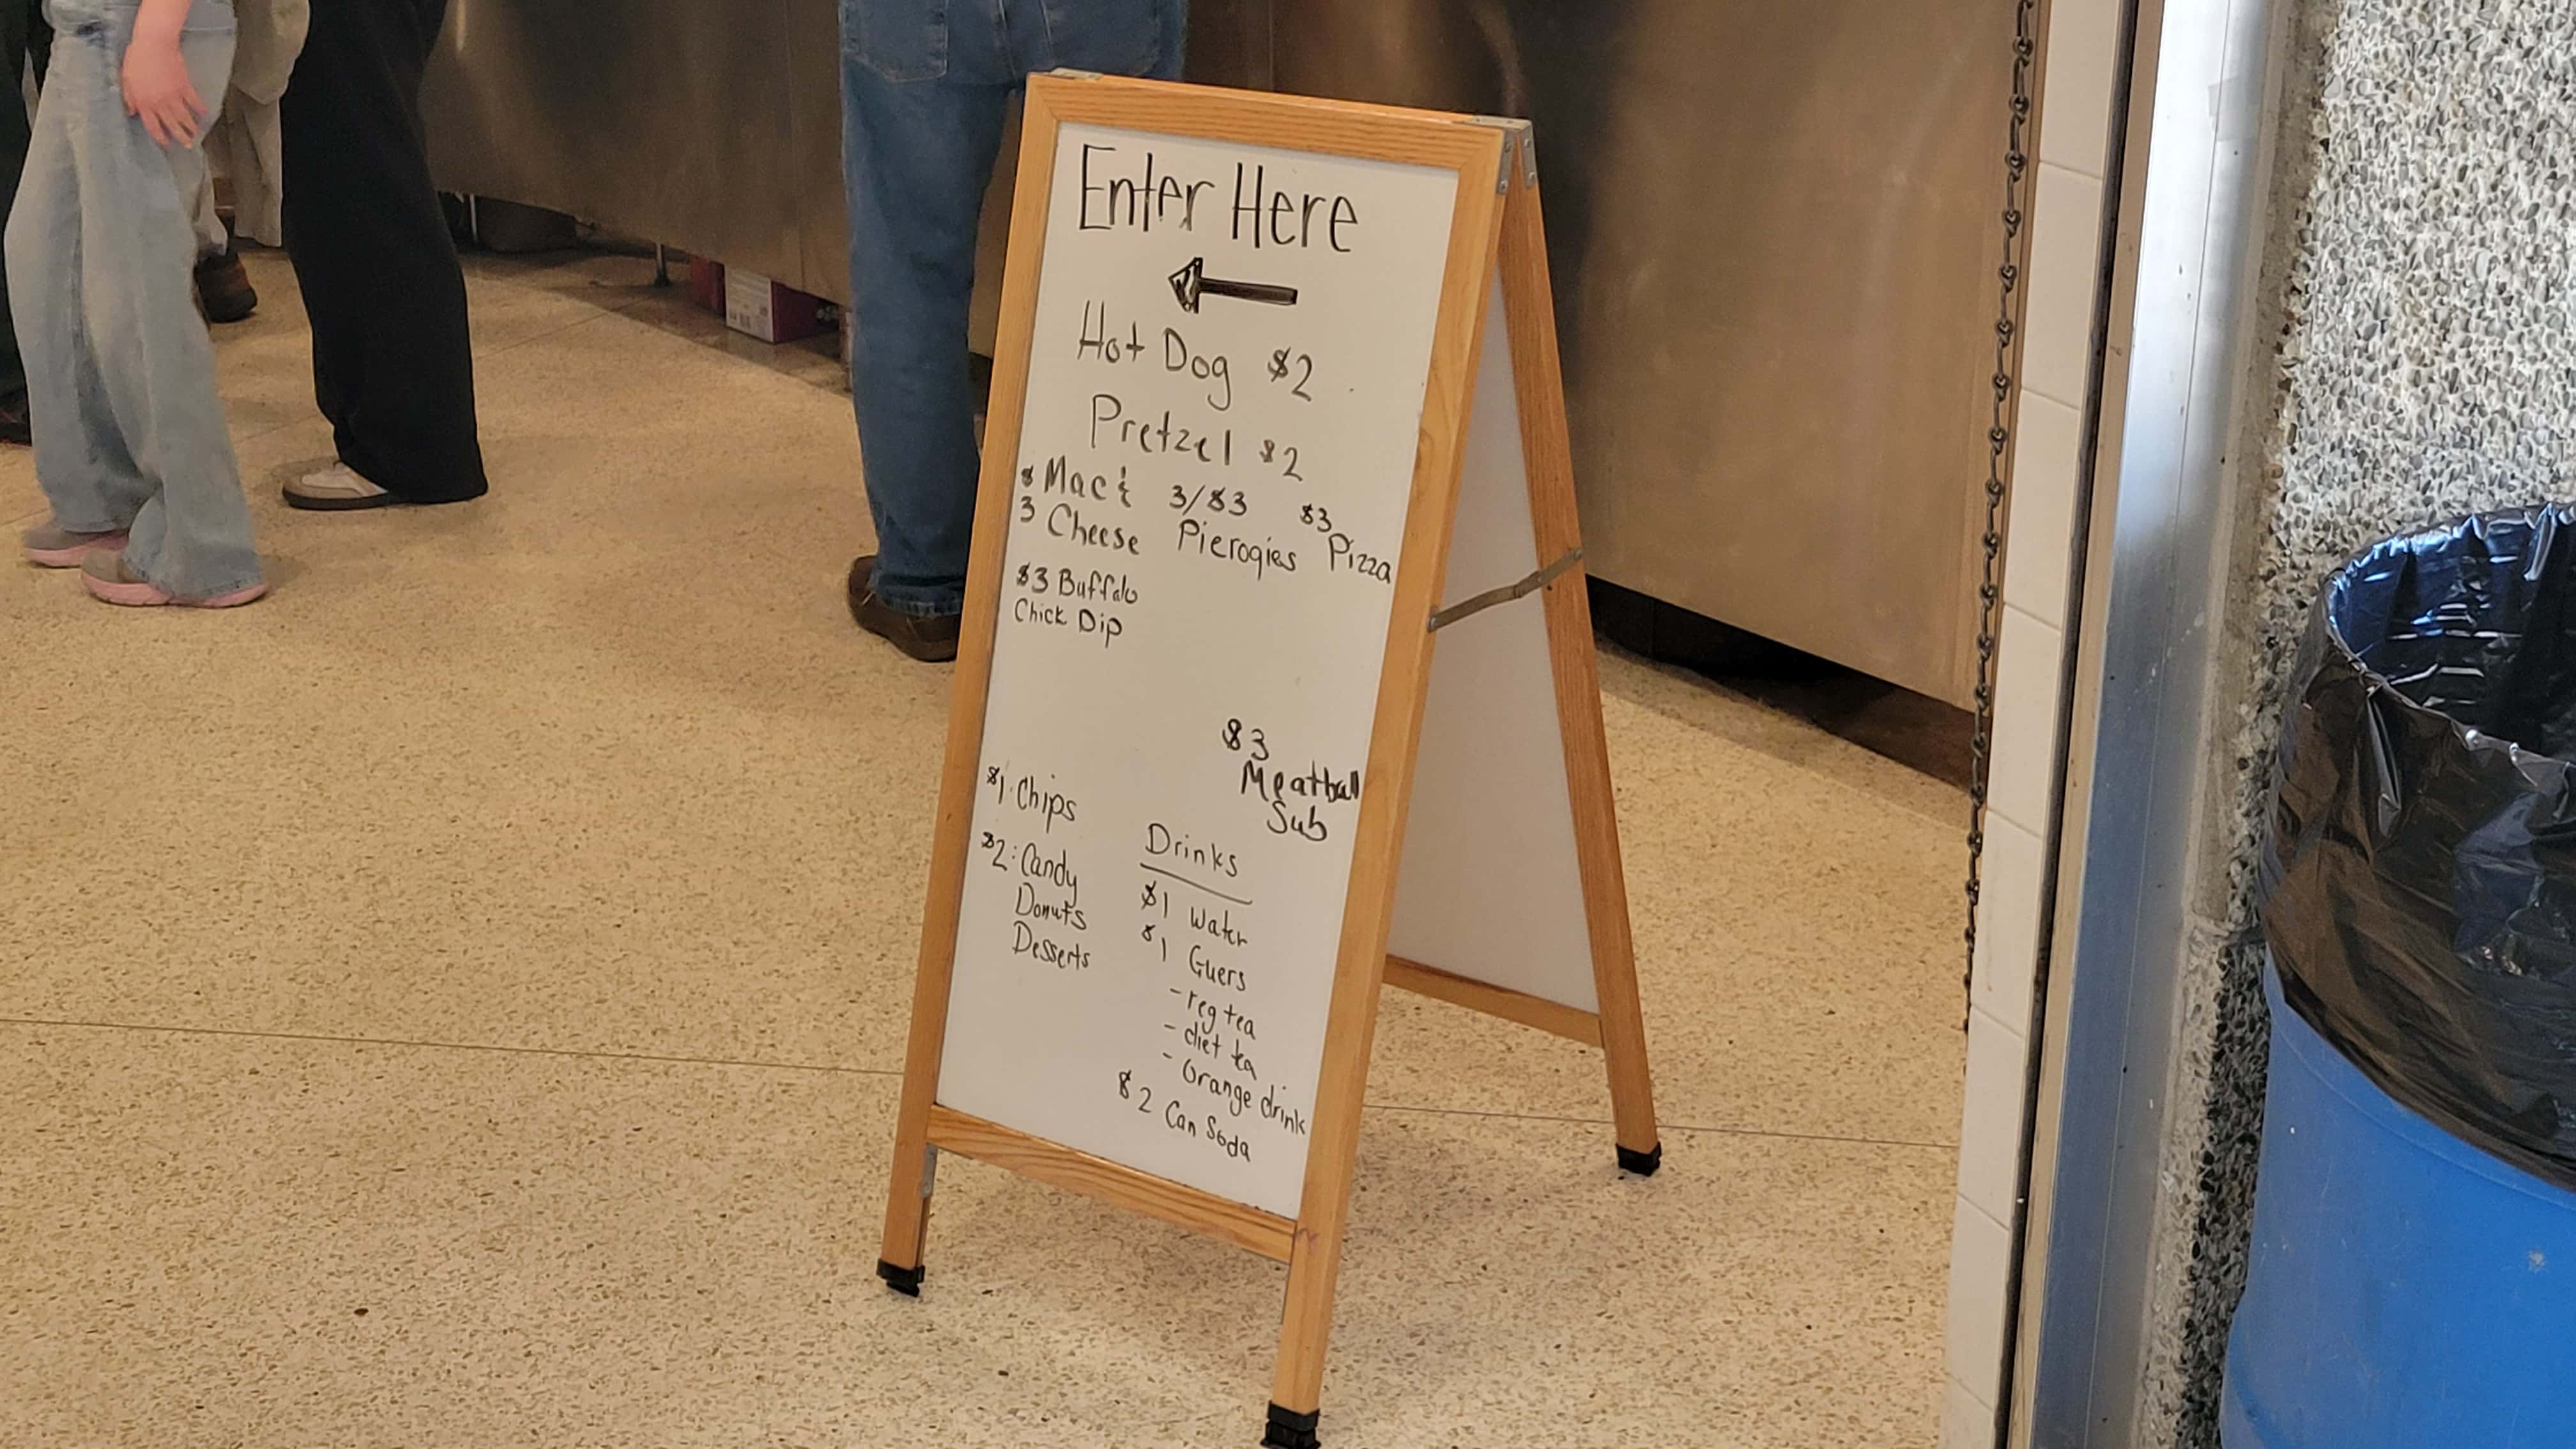 Enter Here
Hot Dog $2
Pretzel $2
$ Mac & 3/$3 $3
3 Cheese Pierogies Pizza
$3 Buffalo
Chick Dip
$3
Meatball
Sub
$1 Chips
$2: Candy
Donuts
Desserts
Drinks
$1 Water
$1 Guers
- reg tea
- diet tea
- Orange drink
$2 Can Soda